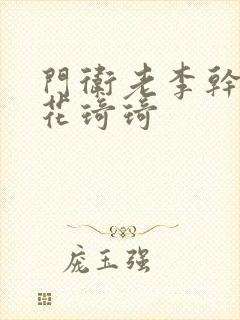 門衛老李幹
花琦琦
庞玉强